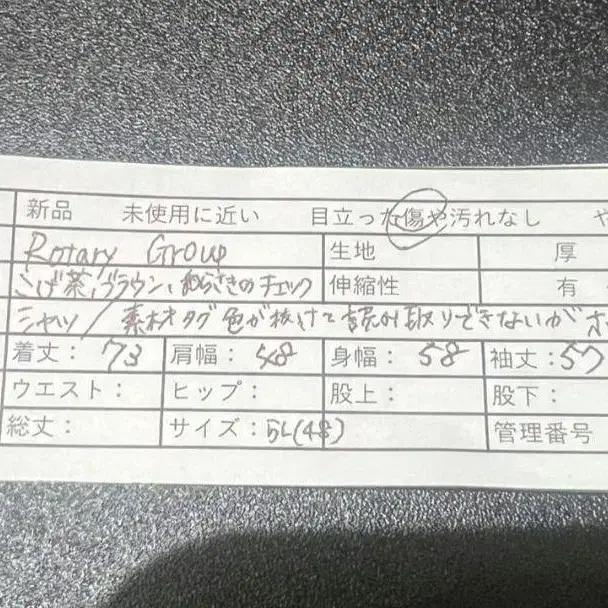 新品 未使用に近い 目立った傷や汚れなし や
Rotary Group 生地 厚
こげ茶、ブラウン、むらさきのチェック 伸縮性 有
シャツ / 素材タグ色が抜けて読み取りできないが
着丈: 73 肩幅: 48 身幅: 58 袖丈: 57
ウエスト: ヒップ: 股上: 股下:
総丈: サイズ: 5L(48) 管理番号